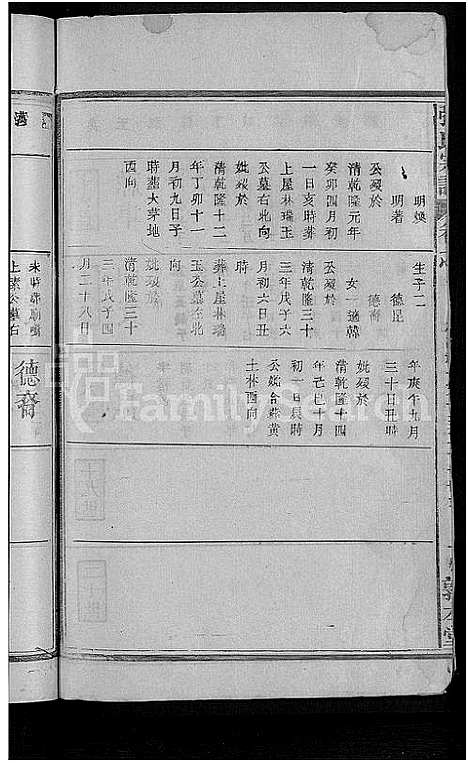 明煥
明著
公歿於
清乾隆元年
癸卯四月初
一日亥時葬
上屋林瑞玉
公墓右北向
妣歿於
清乾隆十二
年丁卯十一
月初九日子
時葬大茅地
酉向
生子二
德昆
德裔
女一適韓
公歿於
清乾隆三十
三年戊子六
月初六日丑
時
葬上屋林瑞
玉公墓左北
向
妣歿於
清乾隆三十
三年戊子四
月二十八日
未時葬
上業公墓右
年庚午九月
三十日丑時
妣歿於
清乾隆十四
年己巳十月
初一日辰時
公妣合葬黃
土林酉向
德裔
十九世
FamilySearch